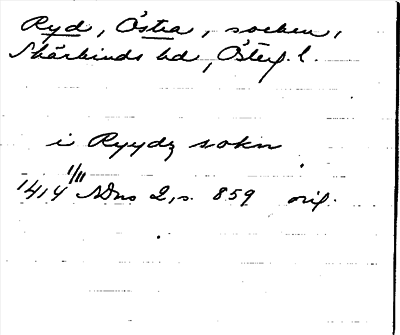 Ryd, Östra, socken,
Skärkinds hd, Österg. l.
i Ryydz sokn
1414 1/11 SDns 2, s. 859 orig.